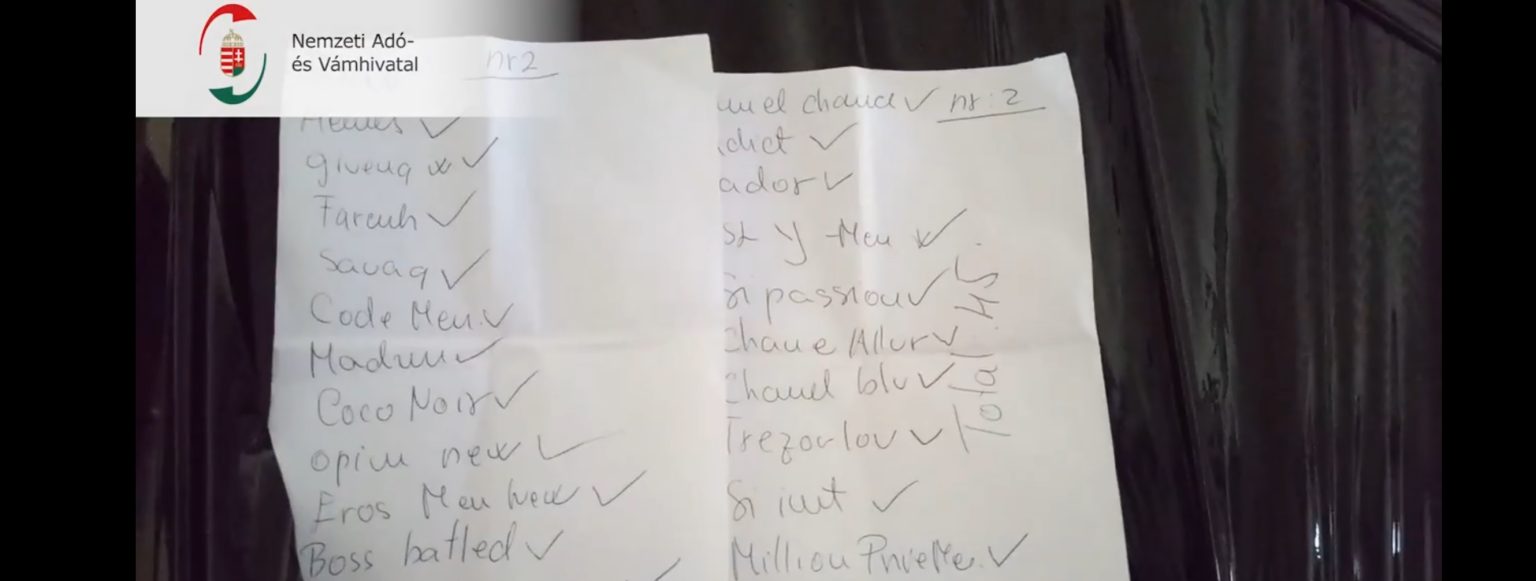 Nemzeti Adó-
és Vámhivatal
nr2
Hemes
giveng
Farenh
Savag
Code Men
Madmu
Coco Noir
opium new
Eros Men new
Boss batled
unel chance nr: 2
dict
ador
st y Men
Si passiou
Chane Allur
Chanel blu
Trezor lov
Si iut
Milliou PriveMe.
Total: 45.